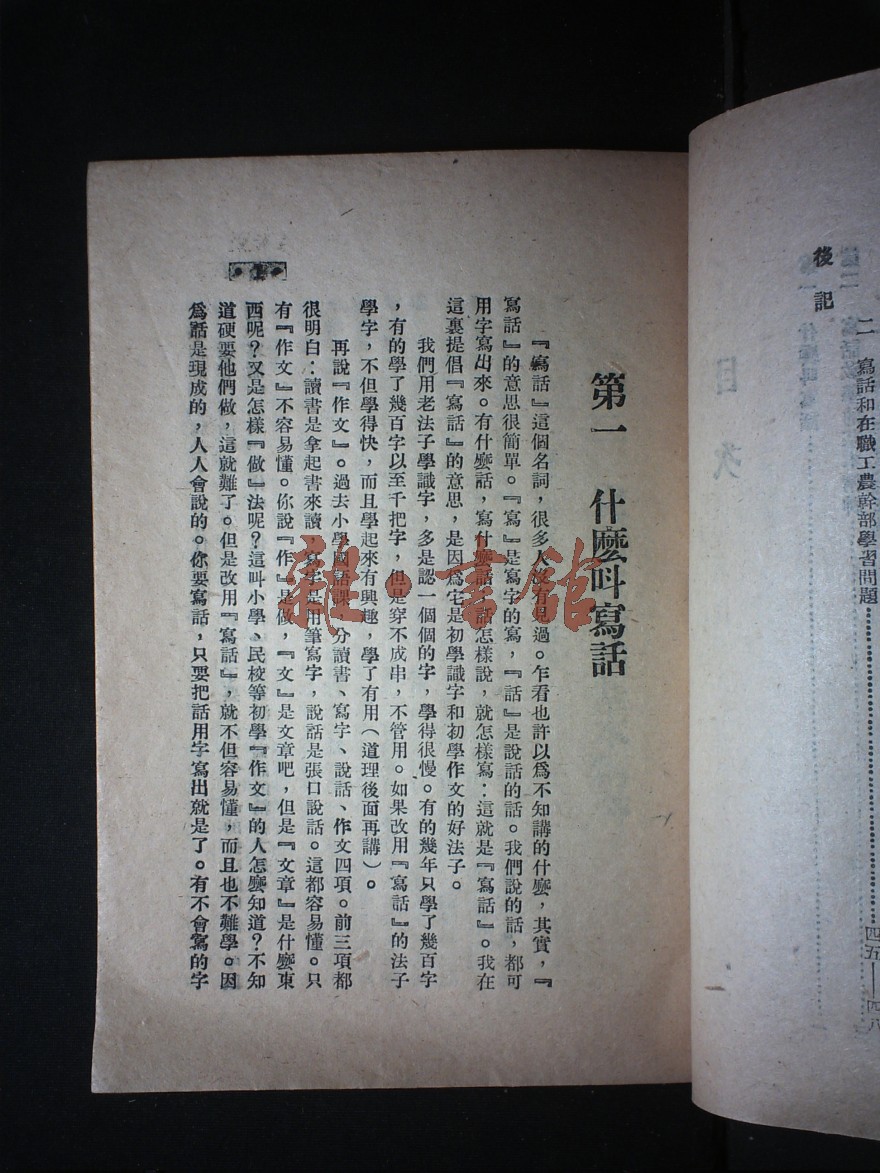 後記
二　寫話和在職工農幹部學習問題……四五——四八
第一　什麼叫寫話
『寫話』這個名詞，很多人沒有見過。乍看也許以爲不知講的什麼，其實，『
寫話』的意思很簡單。『寫』是寫字的寫，『話』是說話的話。我們說的話，都可
用字寫出來。有什麼話，寫什麼話，話怎樣說，就怎樣寫：這就是『寫話』。我在
這裏提倡『寫話』的意思，是因爲它是初學識字和初學作文的好法子。
我們用老法子學識字，多是認一個個的字，學得很慢。有的幾年只學了幾百字
，有的學了幾百字以至千把字，但是穿不成串，不管用。如果改用『寫話』的法子
學字，不但學得快，而且學起來有興趣，學了有用（道理後面再講）。
再說『作文』。過去小學國語課，分讀書、寫字、說話、作文四項。前三項都
很明白：讀書是拿起書來讀，寫字是用筆寫字，說話是張口說話。這都容易懂。只
有『作文』不容易懂。你說『作』是做，『文』是文章吧，但是『文章』是什麼東
西呢？又是怎樣『做』法呢？這叫小學、民校等初學『作文』的人怎麼知道？不知
道硬要他們做，這就難了。但是改用『寫話』，就不但容易懂，而且也不難學。因
爲話是現成的，人人會說的。你要寫話，只要把話用字寫出就是了。有不會寫的字
1
雜·書館